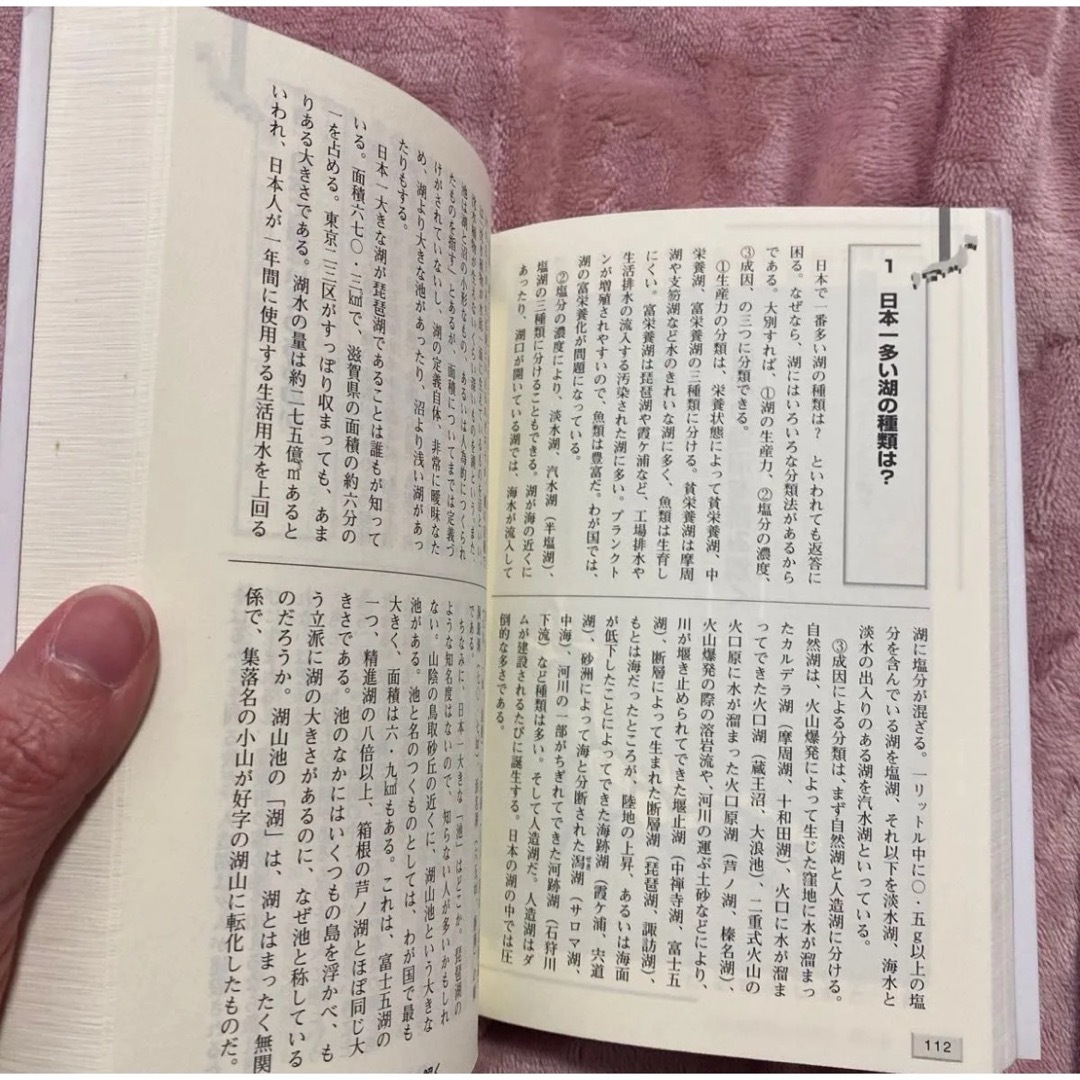 1 日本一多い湖の種類は？
日本で一番多い湖の種類は？　といわれても返答に
困る。なぜなら、湖にはいろいろな分類法があるから
である。大別すれば、①湖の生産力、②塩分の濃度、
③成因、の三つに分類できる。
①生産力の分類は、栄養状態によって貧栄養湖、中
栄養湖、富栄養湖の三種類に分ける。貧栄養湖は摩周
湖や支笏湖など水のきれいな湖に多く、魚類は生育し
にくい。富栄養湖は琵琶湖や霞ケ浦など、工場排水や
生活排水の流入する汚染された湖に多い。プランクト
ンが増殖されやすいので、魚類は豊富だ。わが国では、
湖の富栄養化が問題になっている。
②塩分の濃度により、淡水湖、汽水湖（半塩湖）、
塩湖の三種類に分けることもできる。湖が海の近くに
あったり、湖口が開いている湖では、海水が流入して
湖に塩分が混ざる。一リットル中に〇・五g以上の塩
分を含んでいる湖を塩湖、それ以下を淡水湖、海水と
淡水の出入りのある湖を汽水湖といっている。
③成因による分類は、まず自然湖と人造湖に分ける。
自然湖は、火山爆発によって生じた窪地に水が溜まっ
たカルデラ湖（摩周湖、十和田湖）、火口に水が溜ま
ってできた火口湖（蔵王沼、大浪池）、二重式火山の
火口原に水が溜まった火口原湖（芦ノ湖、榛名湖）、
火山爆発の際の溶岩流や、河川の運ぶ土砂などにより、
川が堰き止められてできた堰止湖（中禅寺湖、富士五
湖）、断層によって生まれた断層湖（琵琶湖、諏訪湖）、
もとは海だったところが、陸地の上昇、あるいは海面
が低下したことによってできた海跡湖（霞ケ浦、宍道
湖）、砂洲によって海と分断された潟湖（サロマ湖、
中海）、河川の一部がちぎれてできた河跡湖（石狩川
下流）など種類は多い。そして人造湖だ。人造湖はダ
ムが建設されるたびに誕生する。日本の湖の中では圧
倒的な多さである。
112
池は湖と沼の小形なもの、あるいは人為的につくられ
たものを指す」とあるが、面積についてまでは定義づ
けがされていないし、湖の定義自体、非常に曖昧なた
め、湖より大きな池があったり、沼より浅い湖があっ
たりもする。
日本一大きな湖が琵琶湖であることは誰もが知って
いる。面積六七〇・三㎢で、滋賀県の面積の約六分の
一を占める。東京二三区がすっぽり収まっても、あま
りある大きさである。湖水の量は約二七五億㎥あると
いわれ、日本人が一年間に使用する生活用水を上回る
である。
ちなみに、日本一大きな「池」はどこか。琵琶湖の
ような知名度はないので、知らない人が多いかもしれ
ない。山陰の鳥取砂丘の近くに、湖山池という大きな
池がある。池と名のつくものとしては、わが国で最も
大きく、面積は六・九㎢もある。これは、富士五湖の
一つ、精進湖の八倍以上、箱根の芦ノ湖とほぼ同じ大
きさである。池のなかにはいくつもの島を浮かべ、も
う立派に湖の大きさがあるのに、なぜ池と称している
のだろうか。湖山池の「湖」は、湖とはまったく無関
係で、集落名の小山が好字の湖山に転化したものだ。